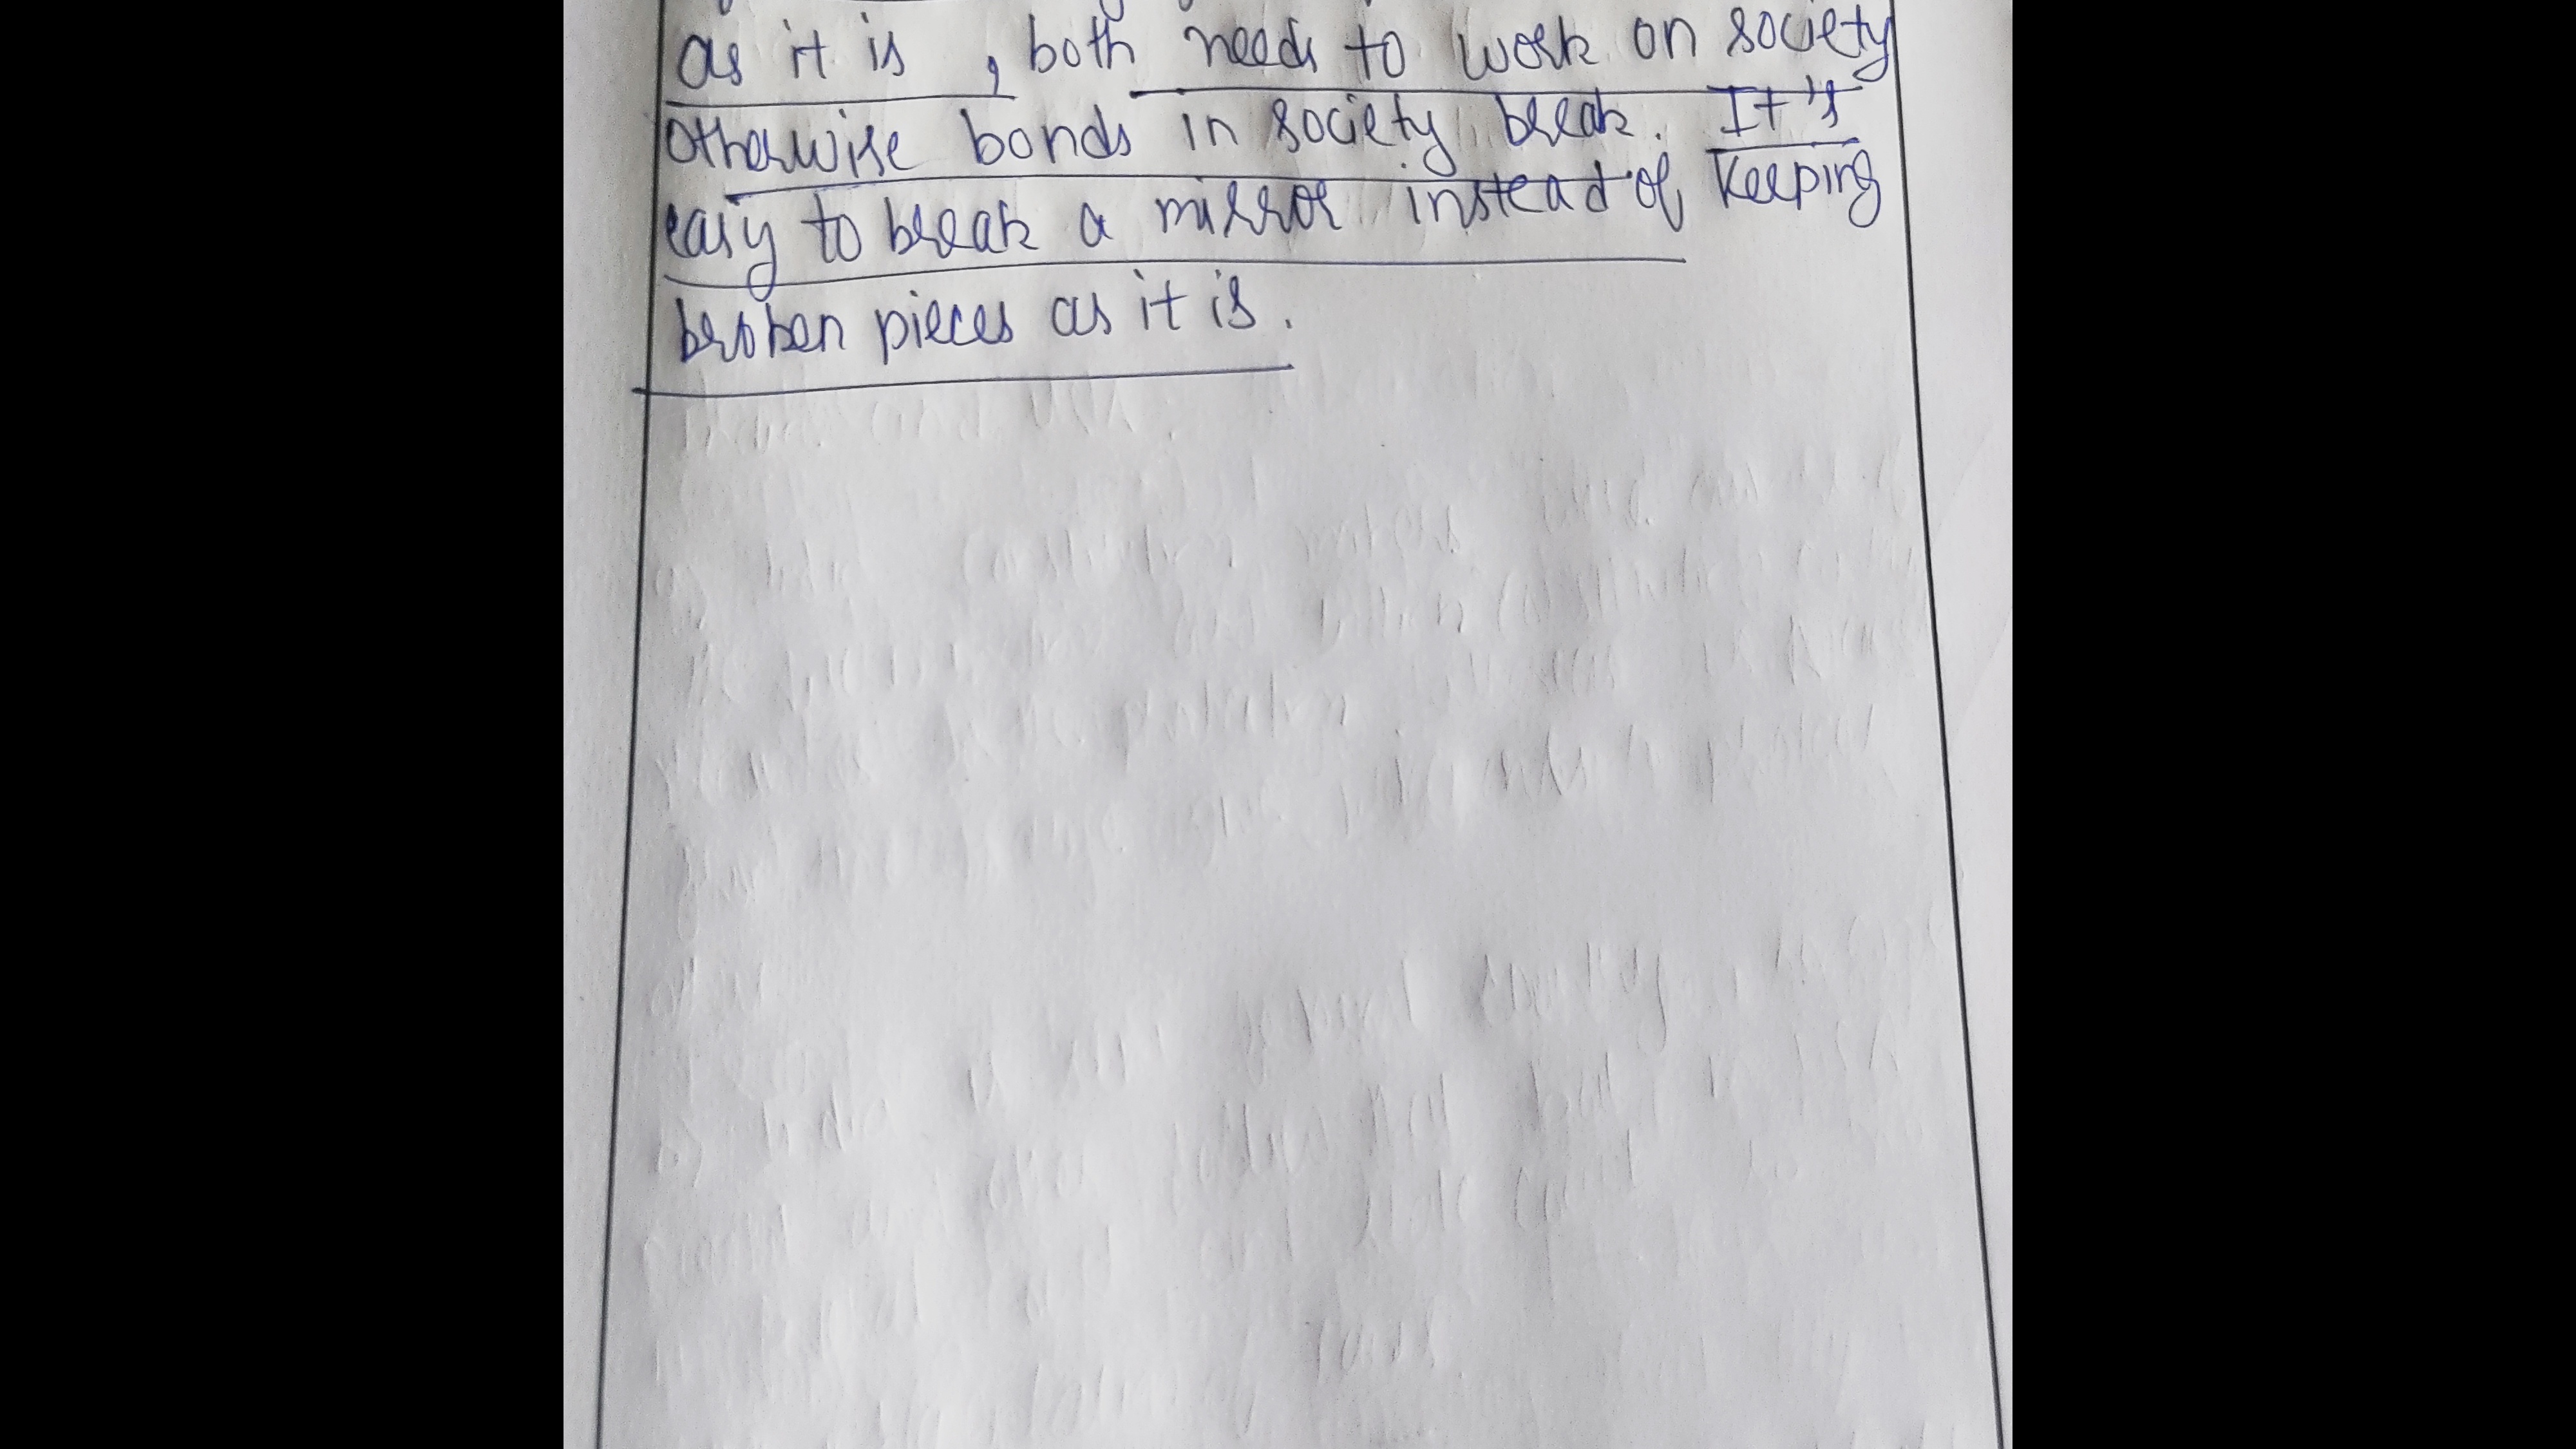 as it is , both needs to work on society
otherwise bonds in society break. It's
easy to break a mirror instead of keeping
broken pieces as it is.